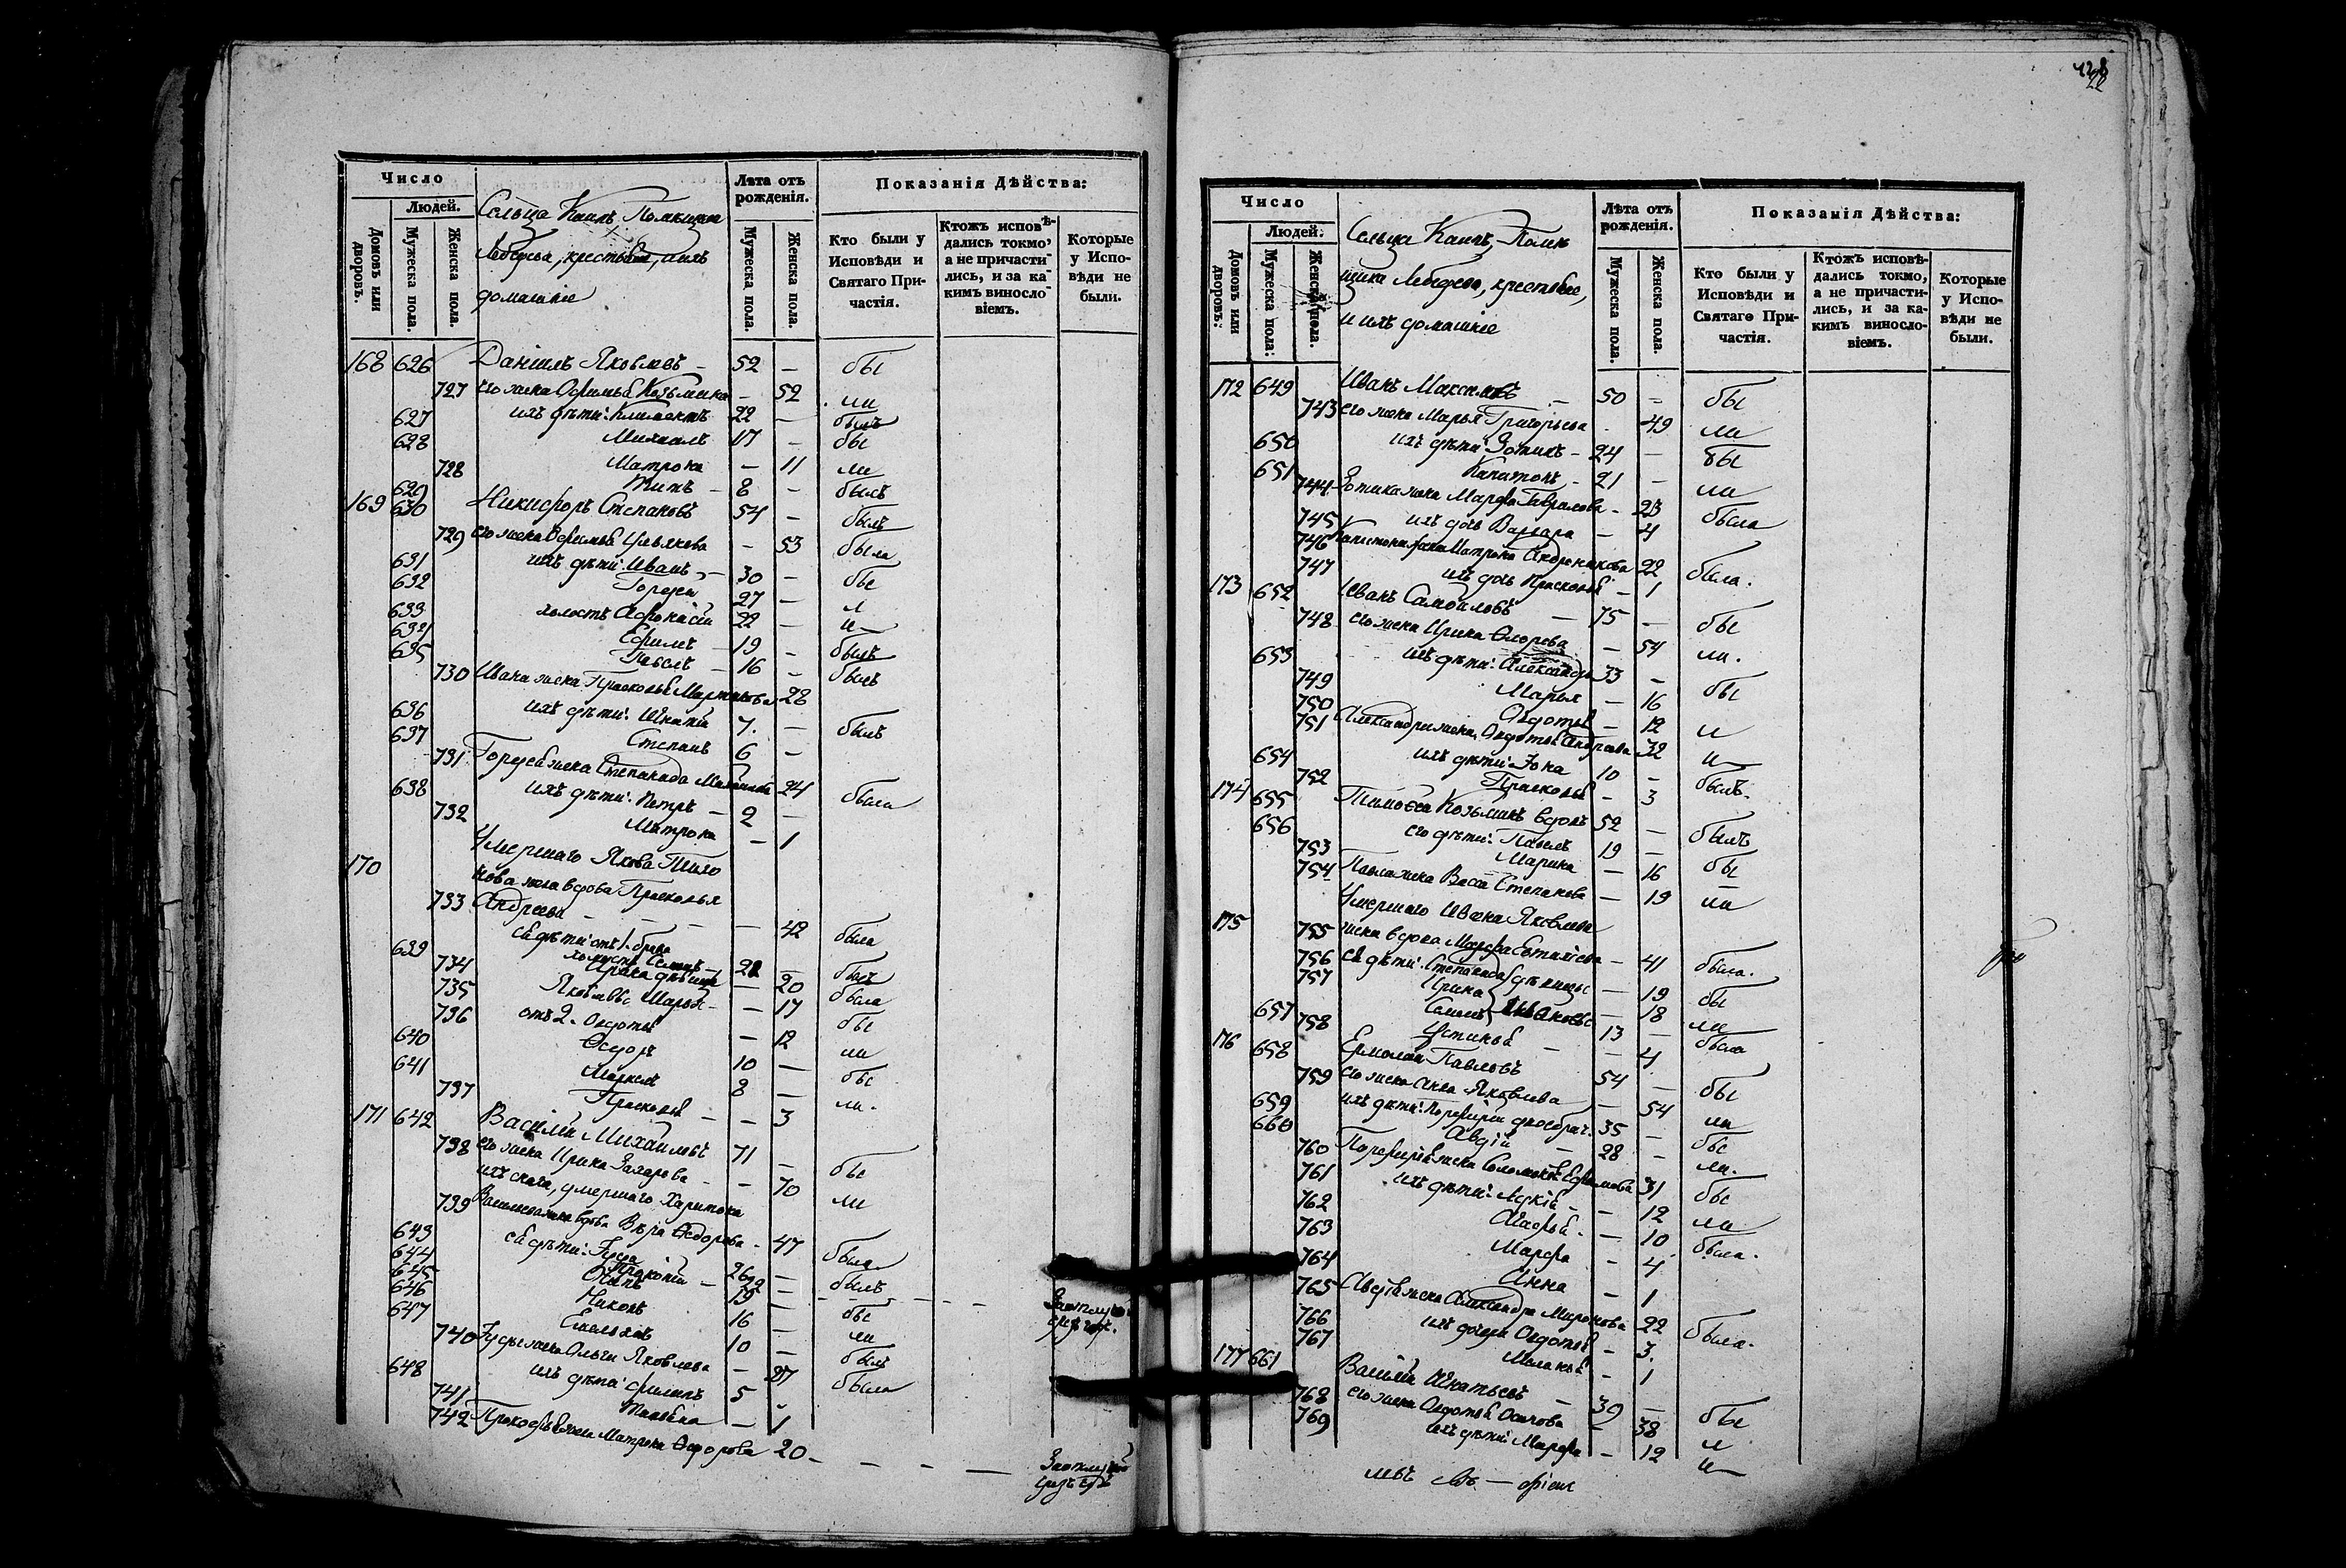 Число
Людей.
Домовъ или дворовъ.
Мужеска пола.
Женска пола.
Сельца
Лебедева, крестьяне, и ихъ
домашніе
Лѣта отъ рожденія.
Мужеска пола.
Женска пола.
Показанія Дѣйства:
Кто были у Исповѣди и Святаго Причастія.
Ктожъ исповѣдались токмо, а не причастились, и за какимъ винословіемъ.
Которые у Исповѣди не были.
168 626 Даніилъ Яковлевъ — 52 — бы
727 его жена Офимья Козьмина — 52 ли
627 ихъ дѣти: Климентъ 22 — былъ
628 Михаилъ 17 — бы
728 Матрона — 11 ли
629 8 — былъ
169 630 Никифоръ Степановъ 54 — былъ
729 его жена Офимья — 53 была
631 ихъ дѣти: Иванъ — 30 — бы
632 Гордей 27 —
633 холостъ Афонасій 22 — и
634 Ефимъ — 19 — былъ
635 Павелъ — 16 — былъ
730 Ивана жена Прасковья Мартинова 28
636 ихъ дѣти: Игнатій 7. — былъ
637 Степанъ 6 —
731 Гордея жена Степанида 24 была
638 ихъ дѣти: Петръ — 2 —
732 Матрона — 1
170 Умершаго Якова
нова жена вдова Прасковья
733 Андреева — — — 42 была
ея дѣти отъ 1. брака
639 холостъ 21 — былъ
734 Ирина дѣвица — 20 была
735 Марья — — 17 бы
736 отъ 2. Овдотья — 12 ли
640 Ѳедоръ 10 — бы
641 Маркелъ 8 — ли.
737 Прасковья — — 3
171 642 Василій Михайловъ 71 — бы
738 его жена Ирина Захарова — — 70 ли
ихъ сноха, умершаго Харитона
739 Васильева жена вдова Вѣра Ѳедорова — 47 была
643 ея дѣти: 26 — былъ
644 Прокопій — 22 — — — —
645 19 — бы
646 Никонъ 16 — ли
647 Емельянъ 10 — былъ
740 жена Ольга Яковлева — 27 была
648 ихъ дѣти: Филипъ 5 —
741 Татьяна — 1
742 жена Матрона Ѳедорова 20 — — — —
428
Число
Людей.
Домовъ или дворовъ.
Мужеска пола.
Женска пола.
Сельца
щика Лебедева, крестьяне,
и ихъ домашніе
Лѣта отъ рожденія.
Мужеска пола.
Женска пола.
Показанія Дѣйства:
Кто были у Исповѣди и Святаго Причастія.
Ктожъ исповѣдались токмо, а не причастились, и за какимъ винословіемъ.
Которые у Исповѣди не были.
172 649 Иванъ Максимовъ — 50 — бы
743 его жена Марья Григорьева 49 ли
650 ихъ дѣти: Зотикъ — 24 — бы
651 Капитонъ — 21 — ли
744 Зотика жена Марфа Гаврилова — 23 была
745 ихъ дочь Варвара — 4
746 Капитона жена Матрона Андроникова 22 была.
747 ихъ дочь Прасковья — 1
173 652 Иванъ Самойловъ — 75 — бы
748 его жена Ирина Ѳедорова — 54 ли.
653 ихъ дѣти: Александръ 33 — бы
749 Марья — 16
750 Овдотья — 12 и
751 Александра жена Овдотья Андреева 32 и
654 ихъ дѣти: Іона 10 — былъ.
752 Прасковья — 3
174 655 Тимоѳей Козьминъ вдовъ 52 — былъ
656 его дѣти: Павелъ 19 — бы
753 Марина — 16 ли
754 Павла жена Васса Степанова — 19
175 Умершаго Ивана Яковлева
755 жена вдова Марфа — 41 была.
756 ея дѣти: Степанида дѣвицы — 19 бы
757 Ирина — 18 ли
657 13 — былъ
758 Устинья — — 4
176 658 Ермолай Павловъ 54 — бы
759 его жена Анна Яковлева — 54 ли
659 ихъ дѣти: Порфирій двоебрач. 35 — бы
660 Авдій — 28 — ли.
760 Порфирія жена Соломонія Ефимова 31 бы
761 ихъ дѣти: — — 12 ли
762 Агафья. — 10 была.
763 Марфа — 4
764 Анна — 1
765 Авдія жена Александра Миронова 22 была.
766 ихъ дочери Овдотья — 3.
767 Меланья — 1
177 661 Василій Игнатьевъ — 39 — бы
768 его жена Овдотья Осипова — 38 и
769 ихъ дѣти: Марфа — 12 и